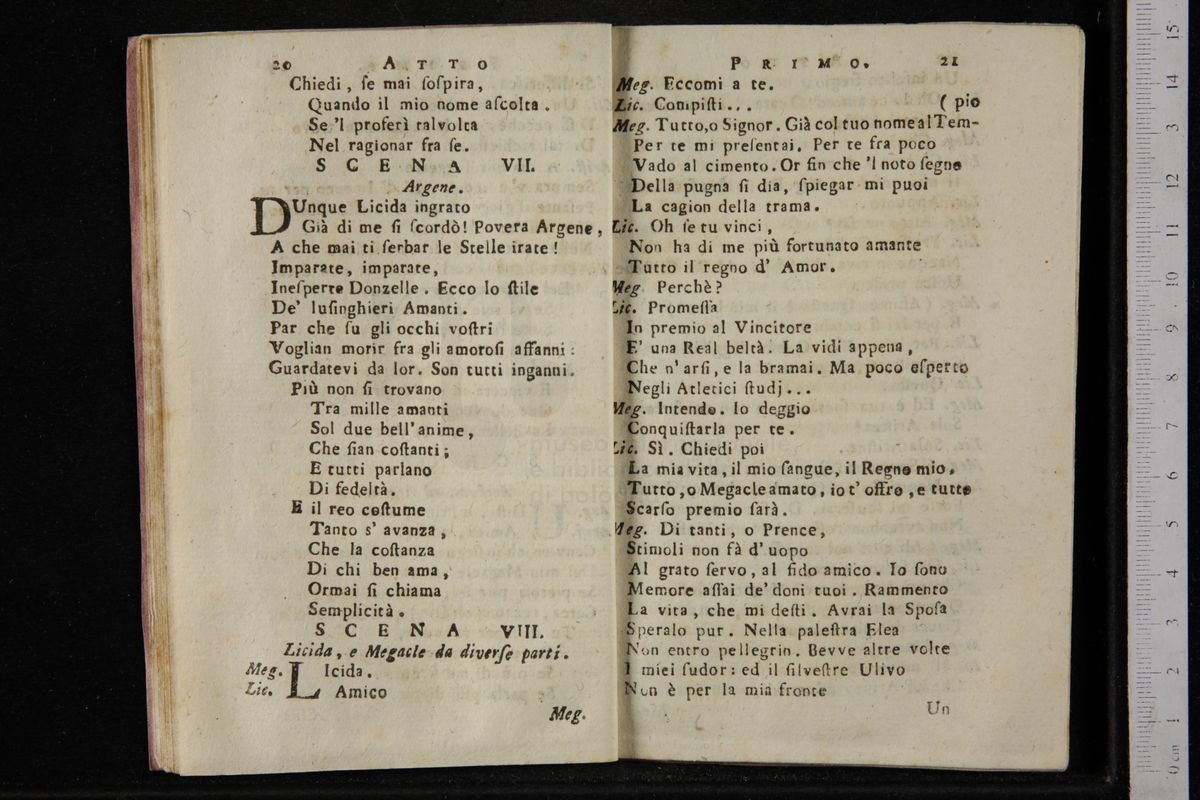 20 ATTO
Chiedi, ſe mai ſoſpira,
Quando il mio nome aſcolta.
Se 'l proferì talvolta
Nel ragionar fra ſe.
SCENA VII.
Argene.
DUnque Licida ingrato
Già di me ſi ſcordò! Povera Argene,
A che mai ti ſerbar le Stelle irate!
Imparate, imparate,
Ineſperte Donzelle. Ecco lo ſtile
De' luſinghieri Amanti.
Par che ſu gli occhi voſtri
Voglian morir fra gli amoroſi affanni:
Guardatevi da lor. Son tutti inganni.
Più non ſi trovano
Tra mille amanti
Sol due bell'anime,
Che ſian coſtanti;
E tutti parlano
Di fedeltà.
E il reo coſtume
Tanto s' avanza,
Che la coſtanza
Di chi ben ama,
Ormai ſi chiama
Semplicità.
SCENA VIII.
Licida, e Megacle da diverſe parti.
Meg. LIcida.
Lic. Amico
Meg.
PRIMO. 21
Meg. Eccomi a te.
Lic. Compiſti... (pio
Meg. Tutto, o Signor. Già col tuo nome al Tem-
Per te mi preſentai. Per te fra poco
Vado al cimento. Or fin che 'l noto ſegno
Della pugna ſi dia, ſpiegar mi puoi
La cagion della trama.
Lic. Oh ſe tu vinci,
Non ha di me più fortunato amante
Tutto il regno d' Amor.
Meg. Perchè?
Lic. Promeſſa
In premio al Vincitore
E' una Real beltà. La vidi appena,
Che n' arſi, e la bramai. Ma poco eſperto
Negli Atletici ſtudj...
Meg. Intendo. Io deggio
Conquiſtarla per te.
Lic. Sì. Chiedi poi
La mia vita, il mio ſangue, il Regno mio.
Tutto, o Megacle amato, io t' offro, e tutto
Scarſo premio ſarà.
Meg. Di tanti, o Prence,
Stimoli non fà d' uopo
Al grato ſervo, al fido amico. Io ſono
Memore aſſai de' doni tuoi. Rammento
La vita, che mi deſti. Avrai la Spoſa
Speralo pur. Nella paleſtra Elea
Non entro pellegrin. Bevve altre volte
I miei ſudor: ed il ſilveſtre Ulivo
Non è per la mia fronte
Un
0 cm 1 2 3 4 5 6 7 8 9 10 11 12 13 14 15